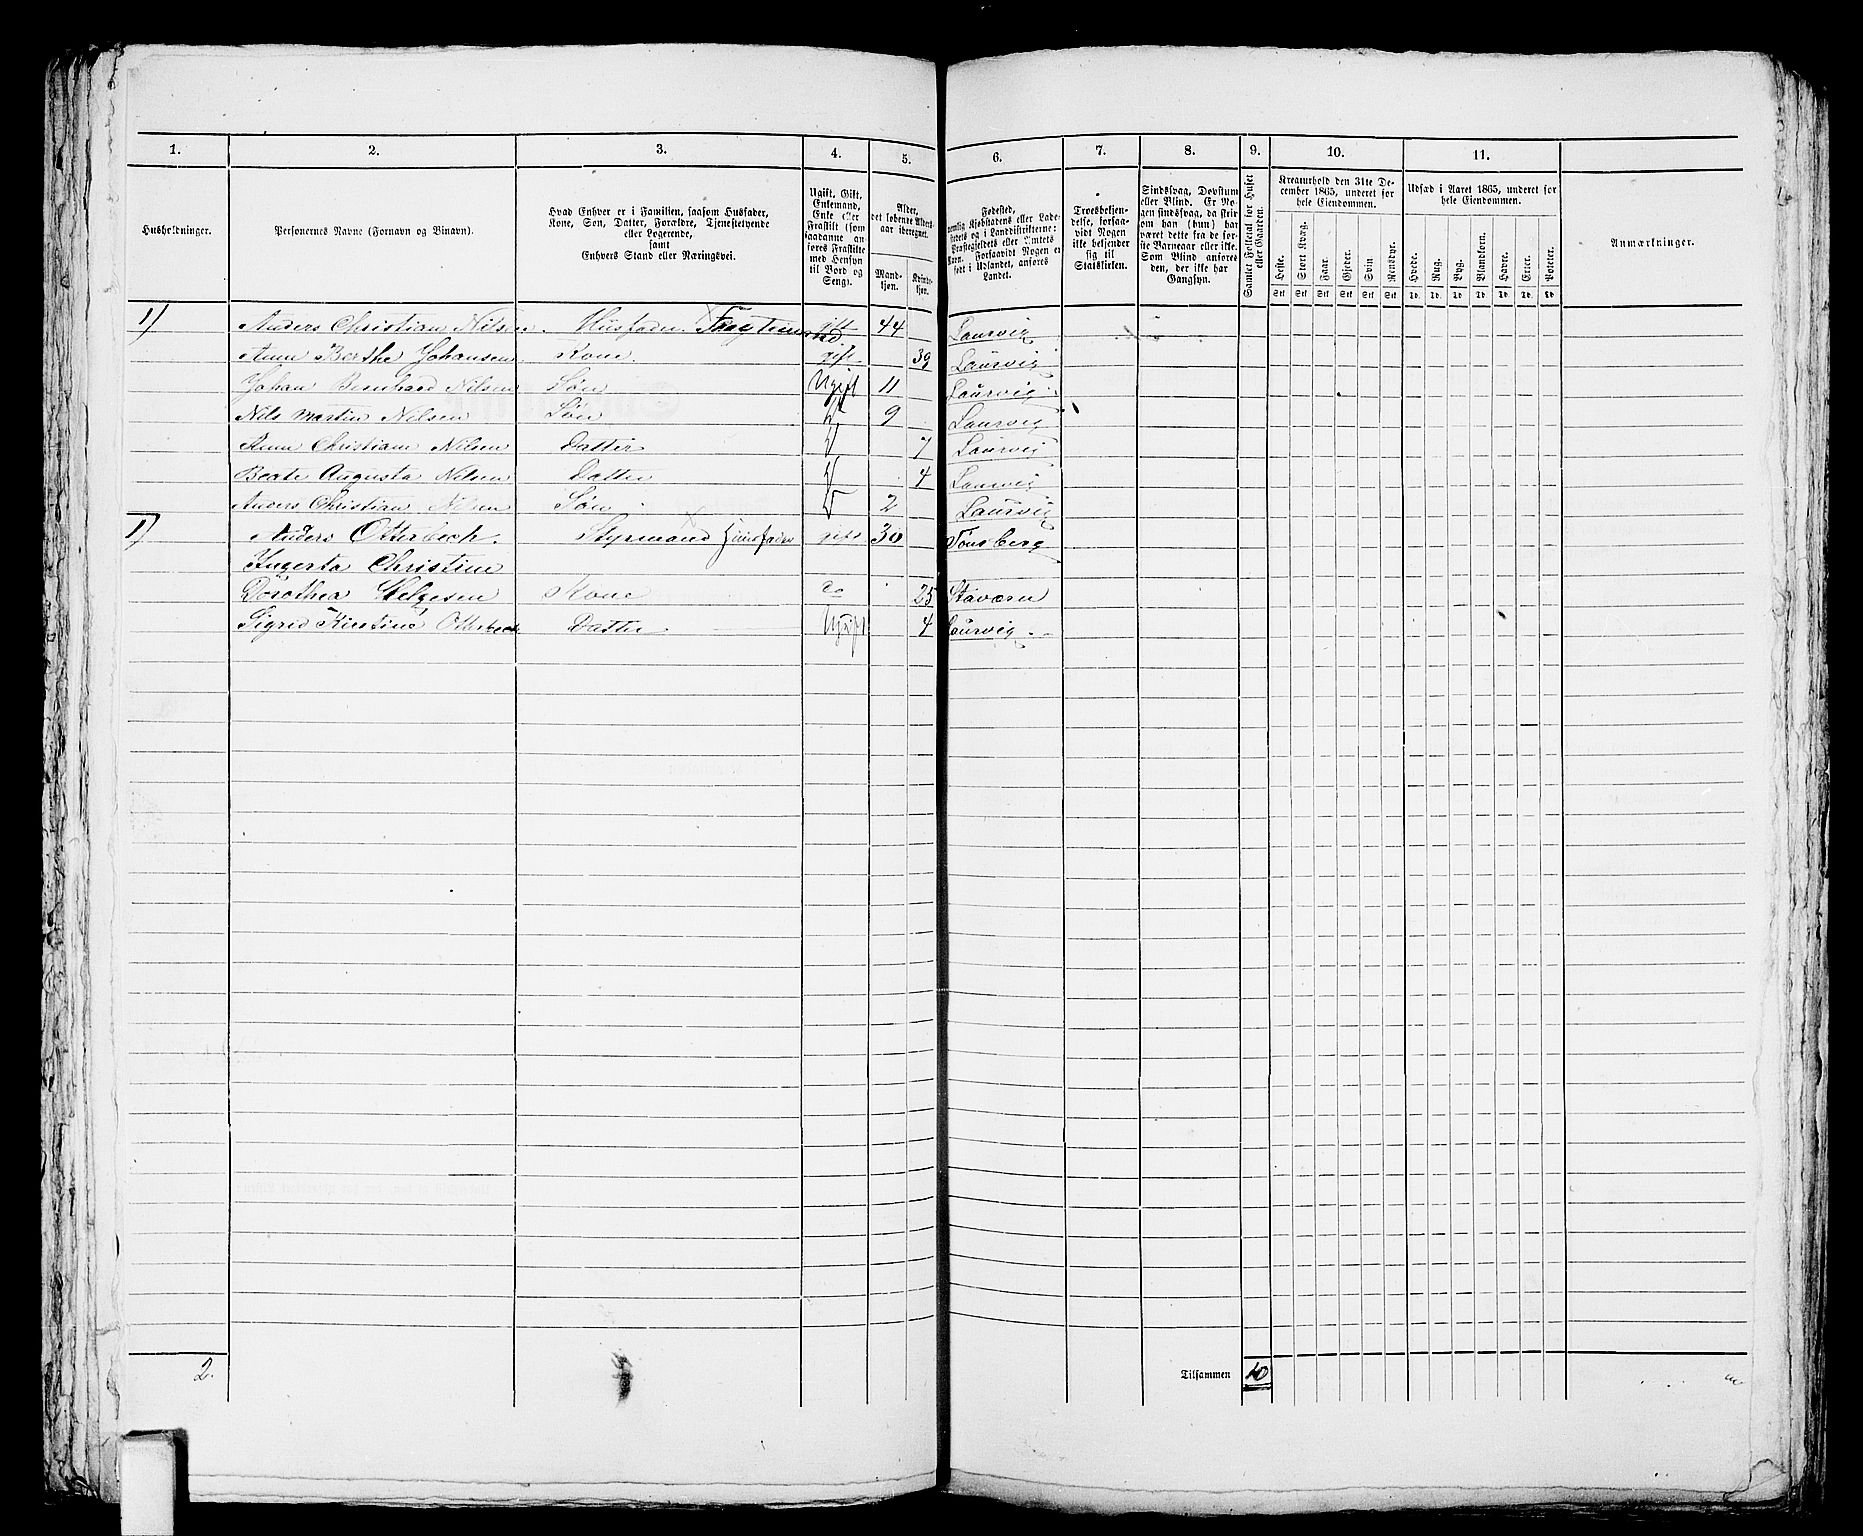 1. 2. 3. 4. 5. 6. 7. 8. 9. 10. 11.
Husholdninger.
Personernes Navne (Fornavn og Binavn).
Hvad Enhver er i Familien, saasom Husfader,
Kone, Søn, Datter, Forældre, Tjenestetyende
eller Logerende,
samt
Enhvers Stand eller Næringsvei.
Ugift, Gift,
Enkemand,
Enke eller
Fraskilt (som
saadanne an-
føres Fraskilte
med Hensyn
til Bord og
Seng).
Alder,
det løbende Alders-
aar iberegnet.
Mand-
kjøn.
Kvinde-
kjøn.
Fødested,
nemlig Kjøbstadens eller Lade-
stedets og i Landdistrikterne:
Præstegjeldets eller Amtets
Navn. Forsaavidt Nogen er
født i Udlandet, anføres
Landet.
Troesbekjen-
delse, forsaa-
vidt Nogen
ikke bekjender
sig til
Statskirken.
Sindssvag, Døvstum
eller Blind. Er No-
gen sindssvag, da skriv
om han (hun) har
været dette fra de før-
ste Barneaar eller ikke.
Som Blind anføres
den, der ikke har
Gangsyn.
Samlet Folketal for Huset
eller Gaarden.
Kreaturhold den 31te De-
cember 1865, underet for
hele Eiendommen.
Heste. Stort Kvæg. Faar. Gjeder. Svin Rensdyr.
Stk Stk Stk Stk Stk Stk
Udsæd i Aaret 1865, underet for
hele Eiendommen.
Hvede. Rug. Byg. Blandkorn. Havre. Erter. Poteter.
Td. Td. Td Td Td. Td. Td
Anmærkninger.
1) Anders Christian Nilsen. Husfader. gift 44 Laurvig
Anne Berthe Johansen Kone. gift 39 Laurvig
Johan Bernhard Nilsen Søn Ugift 11 Laurvig.
Nils Martin Nilsen Søn 9 Laurvig
Anne Christiane Nilsen Datter 7 Laurvig
Beate Augusta Nilsen Datter 4 Laurvig
Anders Christian Nilsen Søn 2 Laurvig
1) Anders Otterbech. Styrmand Husfader gift 30 Tönsberg
Christine
Dorothea Helgesen Kone do 25 Staværn
Sigrid Kirstine Otterbech. Datter Ugift 4 Laurvig.
2. Tilsammen 10